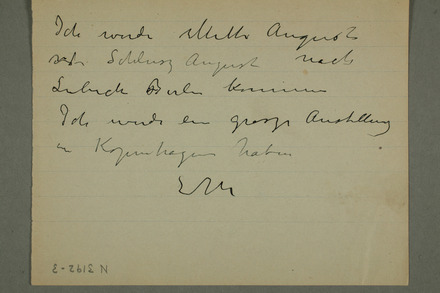 Ich werde Mitte Augusts
Schluss August nach
Lübeck Berlin kommen
Ich werde ein grosze Ausstellung
in Kopenhagen haben
EM
N 3192-3